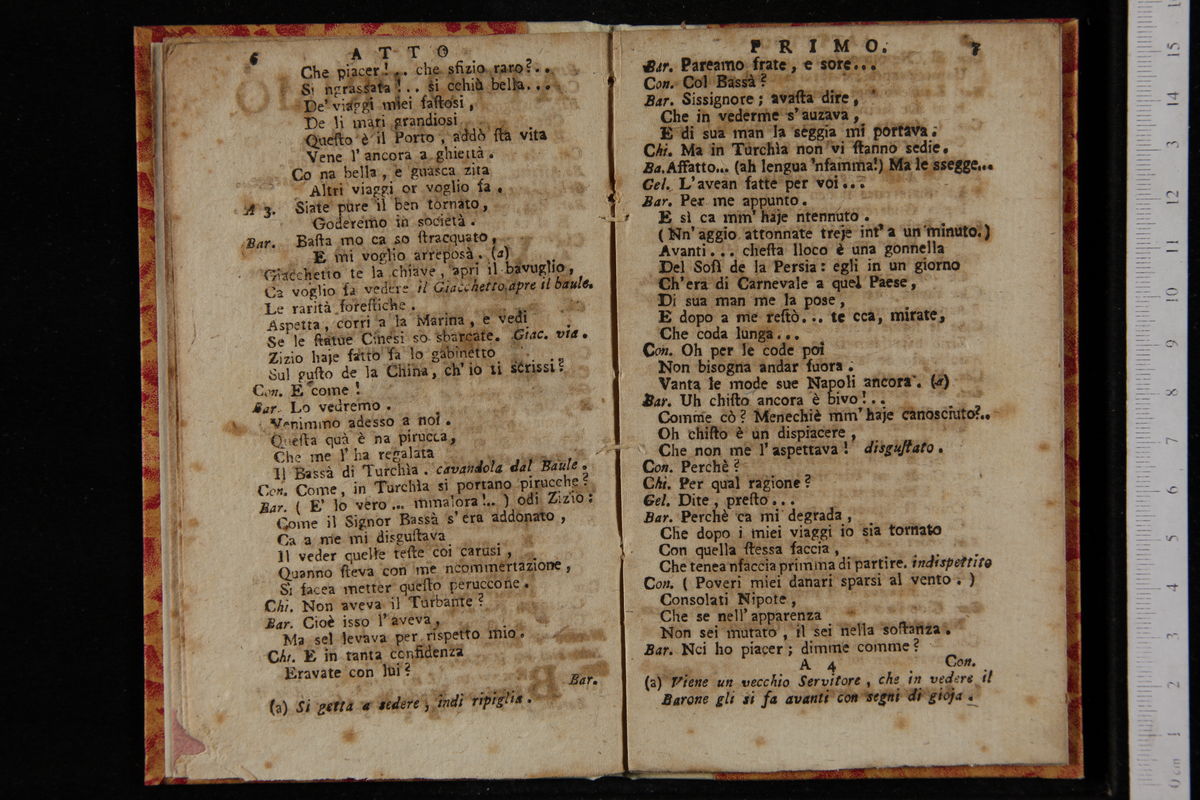 6 ATTO
Che piacer!.. che sfizio raro?..
Si ngrassata!.. si cchiù bella...
De' viaggi miei faſtosi,
De li mari grandiosi
Queſto è il Porto, addò ſta vita
Vene l'ancora a ghiettà.
Co na bella, e guasca zita
Altri viaggi or voglio fa.
A 3. Siate pure il ben tornato,
Goderemo in società.
Bar. Baſta mo ca so ſtracquato,
E mi voglio arreposà. (a)
Giacchetto te la chiave, apri il bavuglio,
Ca voglio fa vedere il Giacchetto apre il baule.
Le rarità foreſtiche.
Aspetta, corri a la Marina, e vedi
Se le ſtatue Cinesi so sbarcate. Giac. via.
Zizio haje fatto fa lo gabinetto
Sul guſto de la China, ch'io ti scrissi?
Con. E come!
Bar. Lo vedremo.
Venimmo adesso a noi.
Queſta quà è na pirucca,
Che me l'ha regalata
Il Bassà di Turchìa. cavandola dal Baule.
Con. Come, in Turchìa si portano pirucche?
Bar. (E' lo vero... mmalora!..) odi Zizio:
Come il Signor Bassà s'era addonato,
Ca a me mi disguſtava
Il veder quelle teſte coi carusi,
Quanno ſteva con me ncommertazione,
Si facea metter queſto peruccone.
Chi. Non aveva il Turbante?
Bar. Cioè isso l'aveva,
Ma sel levava per rispetto mio.
Chi. E in tanta confidenza
Eravate con lui?
Bar.
(a) Si getta a sedere, indi ripiglia.
PRIMO. 7
Bar. Pareamo frate, e sore...
Con. Col Bassà?
Bar. Sissignore; avaſta dire,
Che in vederme s'auzava,
E di sua man la seggia mi portava.
Chi. Ma in Turchìa non vi ſtanno sedie.
Ba. Affatto... (ah lengua 'nfamma!) Ma le ssegge...
Gel. L'avean fatte per voi...
Bar. Per me appunto.
E sì ca mm'haje ntennuto.
(Nn'aggio attonnate treje int'a un minuto.)
Avanti... cheſta lloco è una gonnella
Del Sofì de la Persia: egli in un giorno
Ch'era di Carnevale a quel Paese,
Di sua man me la pose,
E dopo a me reſtò... te cca, mirate,
Che coda lunga...
Con. Oh per le code poi
Non bisogna andar fuora.
Vanta le mode sue Napoli ancora. (a)
Bar. Uh chiſto ancora è bivo!..
Comme cò? Menechiè mm'haje canosciuto?..
Oh chiſto è un dispiacere,
Che non me l'aspettava! disguſtato.
Con. Perchè?
Chi. Per qual ragione?
Gel. Dite, preſto...
Bar. Perchè ca mi degrada,
Che dopo i miei viaggi io sia tornato
Con quella ſtessa faccia,
Che tenea nfaccia primma di partire. indispettito
Con. (Poveri miei danari sparsi al vento.)
Consolati Nipote,
Che se nell'apparenza
Non sei mutato, il sei nella soſtanza.
Bar. Nci ho piacer; dimme comme?
A 4 Con.
(a) Viene un vecchio Servitore, che in vedere il
Barone gli si fa avanti con segni di gioja.